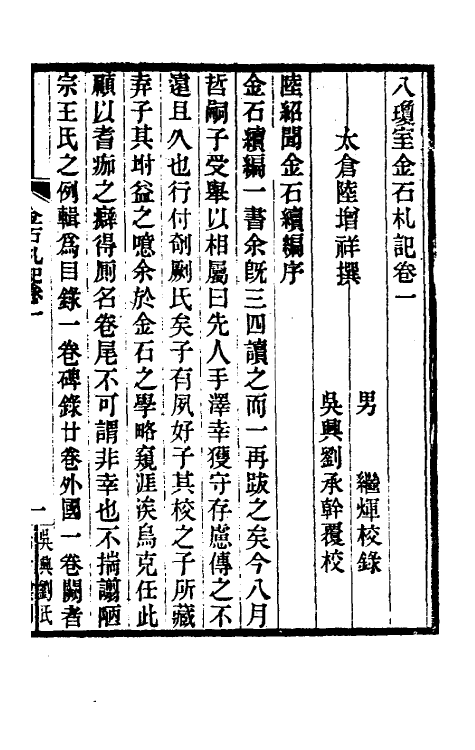 八瓊室金石札記卷一
太倉陸增祥撰
男　繼煇校錄
吳興劉承幹覆校
陸紹聞金石續編序
金石續編一書余既三四讀之而一再跋之矣今八月
哲嗣子受舉以相屬曰先人手澤幸獲守存慮傳之不
遠且久也行付剞劂氏矣子有夙好子其校之子所藏
弆子其坿益之噫余於金石之學略窺涯涘烏克任此
顧以耆痂之癖得厠名卷尾不可謂非幸也不揣譾陋
宗王氏之例輯爲目錄一卷碑錄廿卷外國一卷闕者
金石札記卷一
一
吳興劉氏